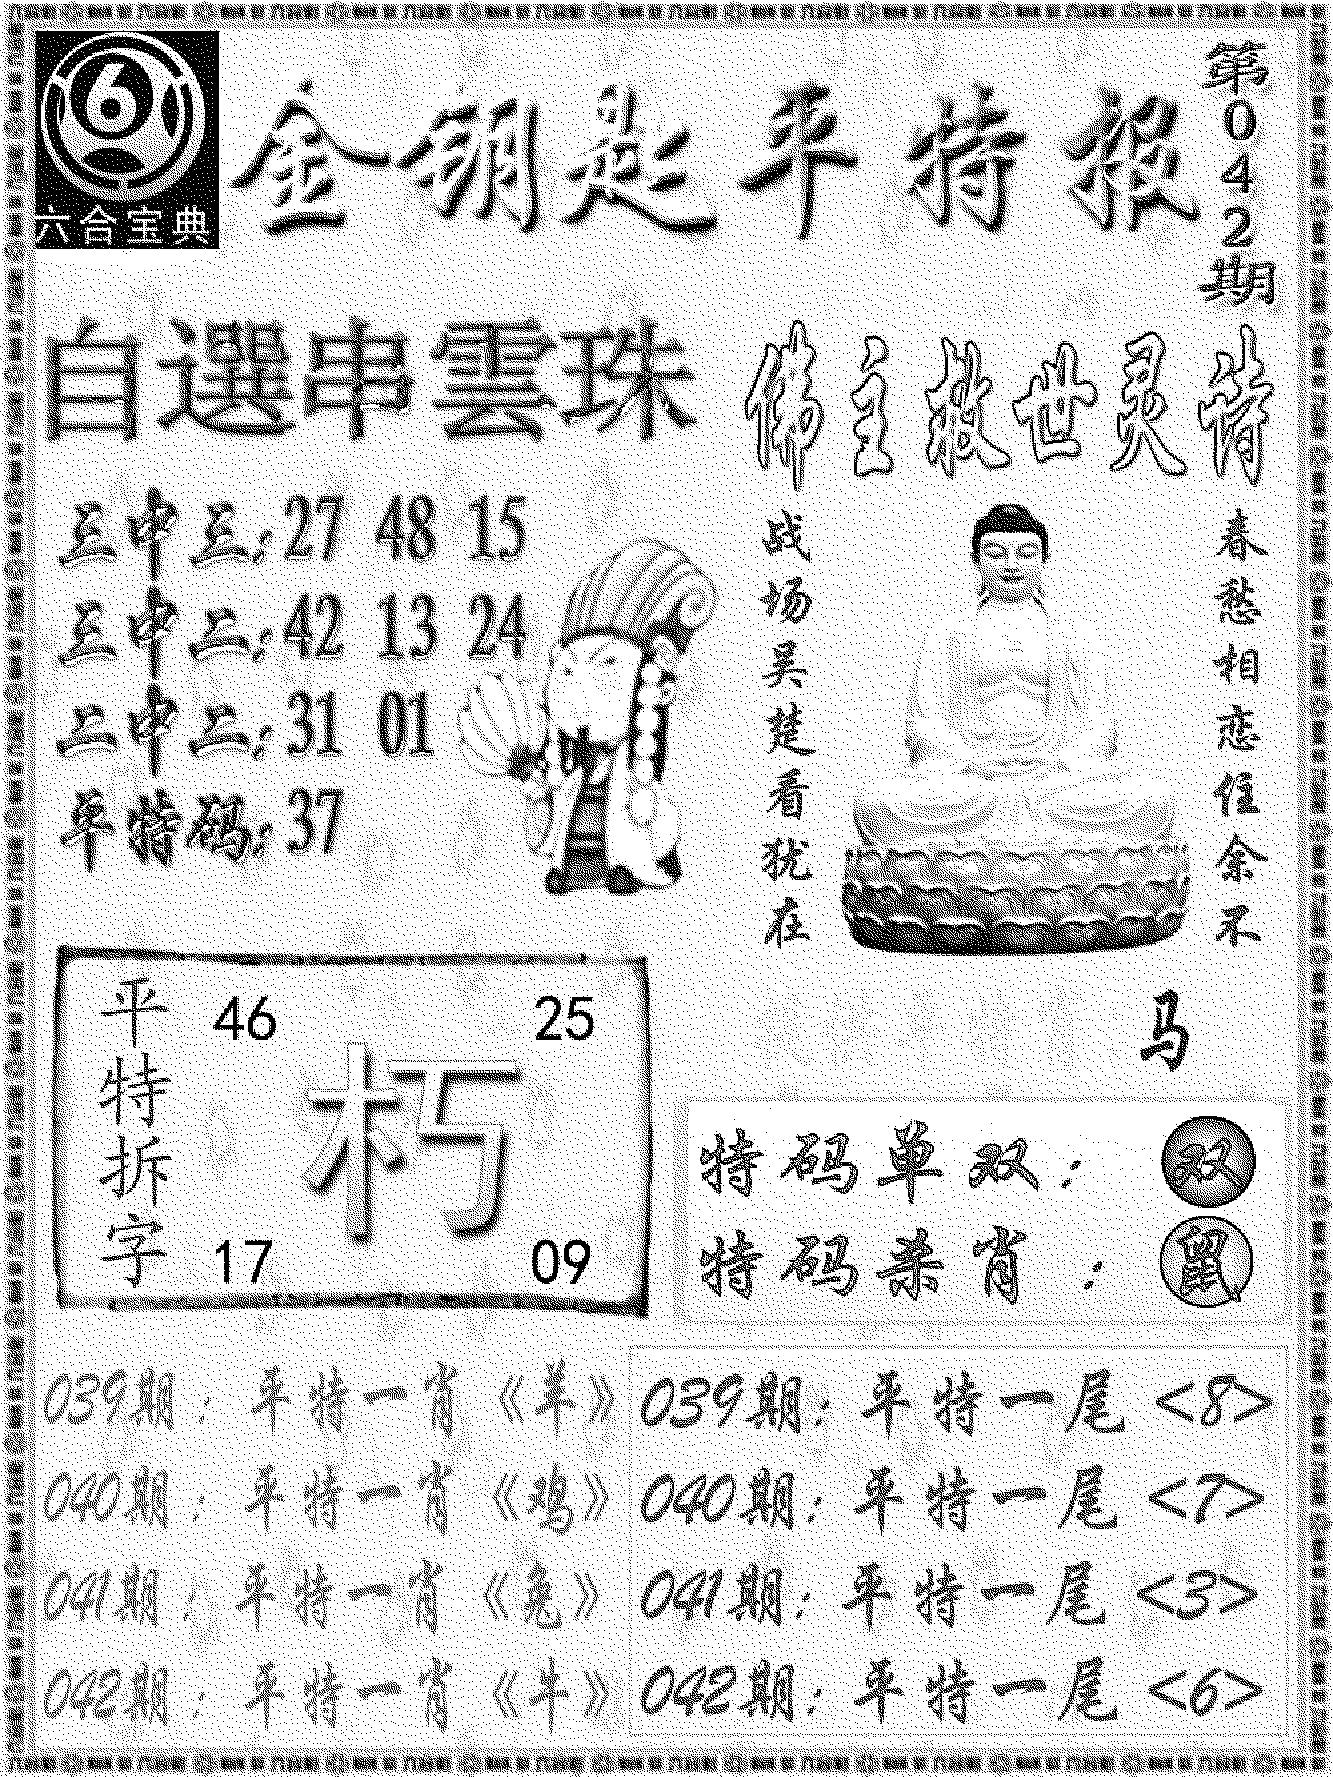 6
六合宝典
金钥匙平特报
第042期
自選串雲珠
三中三:27 48 15
三中二:42 13 24
二中二:31 01
平特码:37
佛主救世灵诗
春愁相恋住余不
战场吴楚看犹在
马
平特拆字
46 25
朽
17 09
特码单双:双
特码杀肖:鼠
039期:平特一肖《羊》
040期:平特一肖《鸡》
041期:平特一肖《兔》
042期:平特一肖《牛》
039期:平特一尾<8>
040期:平特一尾<7>
041期:平特一尾<3>
042期:平特一尾<6>